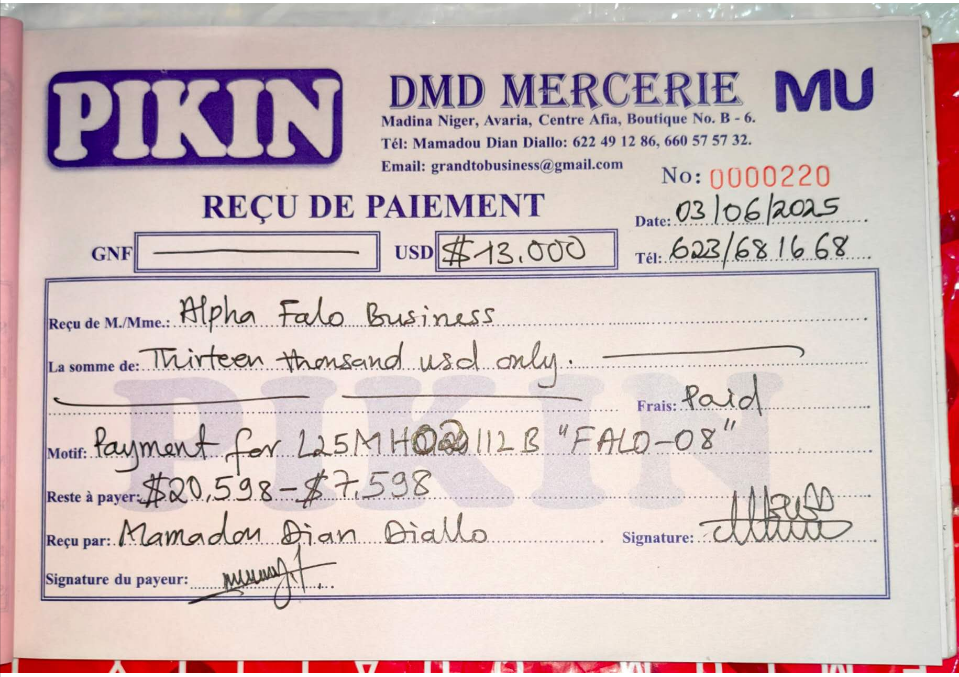 PIKIN
DMD MERCERIE MU
Madina Niger, Avaria, Centre Afia, Boutique No. B - 6.
Tél: Mamadou Dian Diallo: 622 49 12 86, 660 57 57 32.
Email: grandtobusiness@gmail.com
No: 0000220
REÇU DE PAIEMENT
Date: 03/06/2025
GNF USD $13.000
Tél: 623/68 16 68
Reçu de M./Mme.: Alpha Falo Business
La somme de: Thirteen thousand usd only.
PIKIN
Frais: Paid
Motif: Payment for "FALO-08"
Reste à payer: $20,598-$7,598
Reçu par: Mamadou Dian Diallo
Signature:
Signature du payeur: